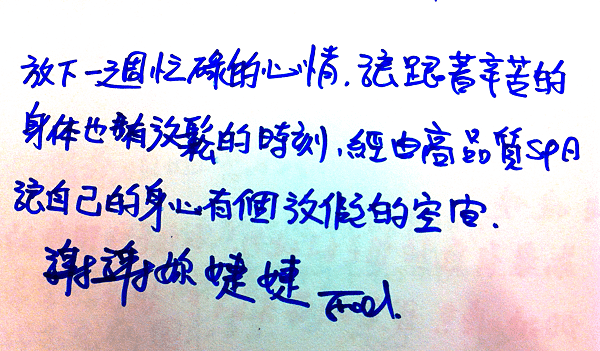 放下一週忙碌的心情.讓跟著辛苦的
身体也有放鬆的時刻.經由高品質SPA
讓自己的身心有個放假的空間.
謝謝妳婕婕